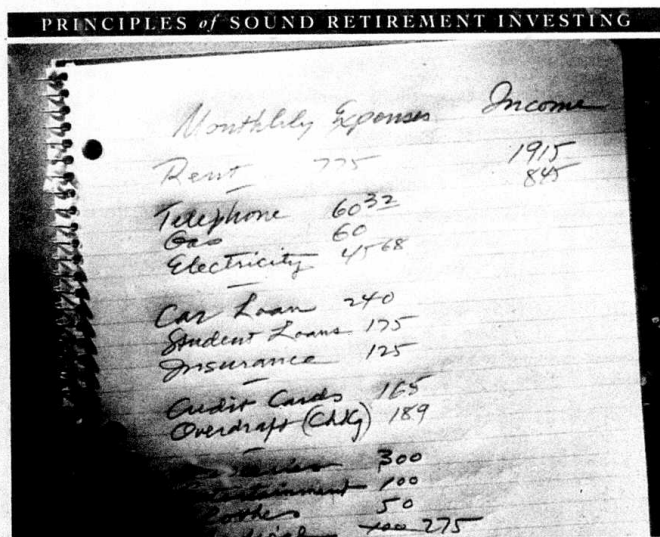 PRINCIPLES of SOUND RETIREMENT INVESTING
Monthlily Expenses Income
Rent 775 1915
845
Telephone 60 32
Gas 60
Electricity 45 68
Car Loan 240
Student Loans 175
Insurance 125
Credit Cards 165
Overdraft (Chkg) 189
300
Entertainment 100
Clothes 50
275